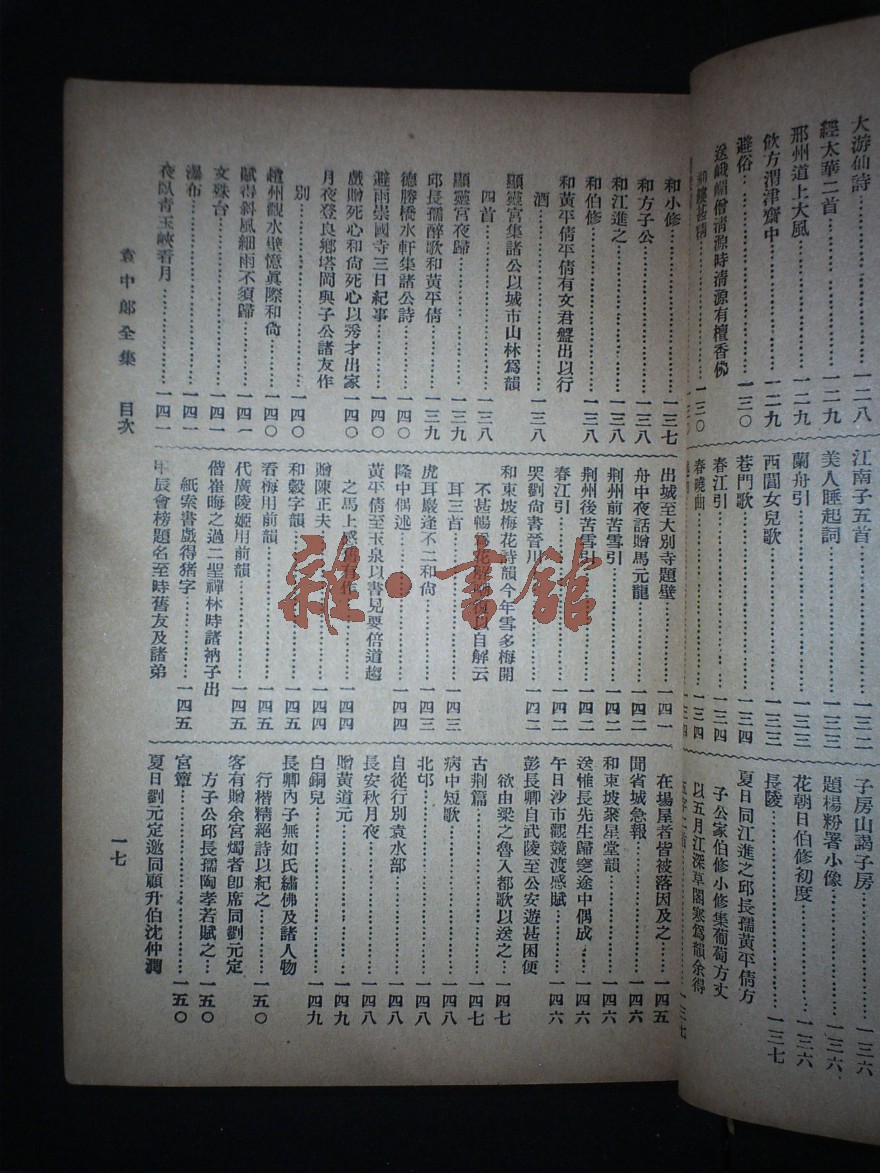 大游仙詩……一二八
經太華二首……一二九
邢州道上大風……一二九
飲方渭津齋中……一二九
避俗……一三〇
送峨嵋僧清源時清源有檀香佛
江南子五首……一三二
美人睡起詞……一三三
蘭舟引……一三三
西閶女兒歌……一三三
巷門歌……一三四
春江引……一三四
春曉曲……一三四
子房山謁子房……一三六
題楊粉署小像……一三六
花朝日伯修初度……一三六
長陵……一三七
夏日同江進之邱長孺黃平倩方
子公家伯修小修集葡萄方丈
以五月江深草閣寒爲韻余得
和小修……一三七
和方子公……一三八
和江進之……一三八
和伯修……一三八
和黃平倩平倩有文君盤出以行
酒……一三八
顯靈宮集諸公以城市山林爲韻
四首……一三八
顯靈宮夜歸……一三九
邱長孺醉歌和黃平倩……一三九
德勝橋水軒集諸公詩……一四〇
避雨崇國寺三日紀事……一四〇
戲贈死心和尙死心以秀才出家……一四〇
月夜登良鄉塔岡與子公諸友作
別……一四〇
檀州觀水壁憶眞際和尙……一四〇
賦得斜風細雨不須歸……一四一
文殊台……一四一
瀑布……一四一
夜臥青玉峽看月……一四一
出城至大別寺題壁……一四一
舟中夜話贈馬元龍……一四二
荆州前苦雪引……一四二
荆州後苦雪引……一四二
春江引……一四二
哭劉尙書晉川……一四二
和東坡梅花詩韻今年雪多梅開
不甚暢爲花解嘲復以自解云
耳三首……一四三
虎耳巖逢不二和尙……一四三
隆中偶述……一四四
黃平倩至玉泉以書見要倍道趨
之馬上感舊有作……一四四
贈陳正夫……一四四
和穀字韻……一四五
看梅用前韻……一四五
代廣陵姬用前韻……一四五
偕崔晦之過二聖禪林時諸衲子出
紙索書戲得猪字……一四五
甲辰會榜題名至時舊友及諸弟
在場屋者皆被落因及之……一四五
聞省城急報……一四六
和東坡聚星堂韻……一四六
送惟長先生歸窆途中偶成……一四六
午日沙市觀競渡感賦……一四六
彭長卿自武陵至公安遊甚困便
欲由梁之魯入都歌以送之……一四七
古荆篇……一四七
病中短歌……一四八
北邙……一四八
自從行別袁水部……一四八
長安秋月夜……一四八
贈黃道元……一四九
白銅兒……一四九
長卿內子無如氏繡佛及諸人物
行楷精絕詩以紀之……一五〇
客有贈余宮燭者卽席同劉元定
方子公邱長孺陶孝若賦之……一五〇
宮簟……一五〇
夏日劉元定邀同顧升伯沈仲潤
袁中郎全集 目次
一七
雜·書館